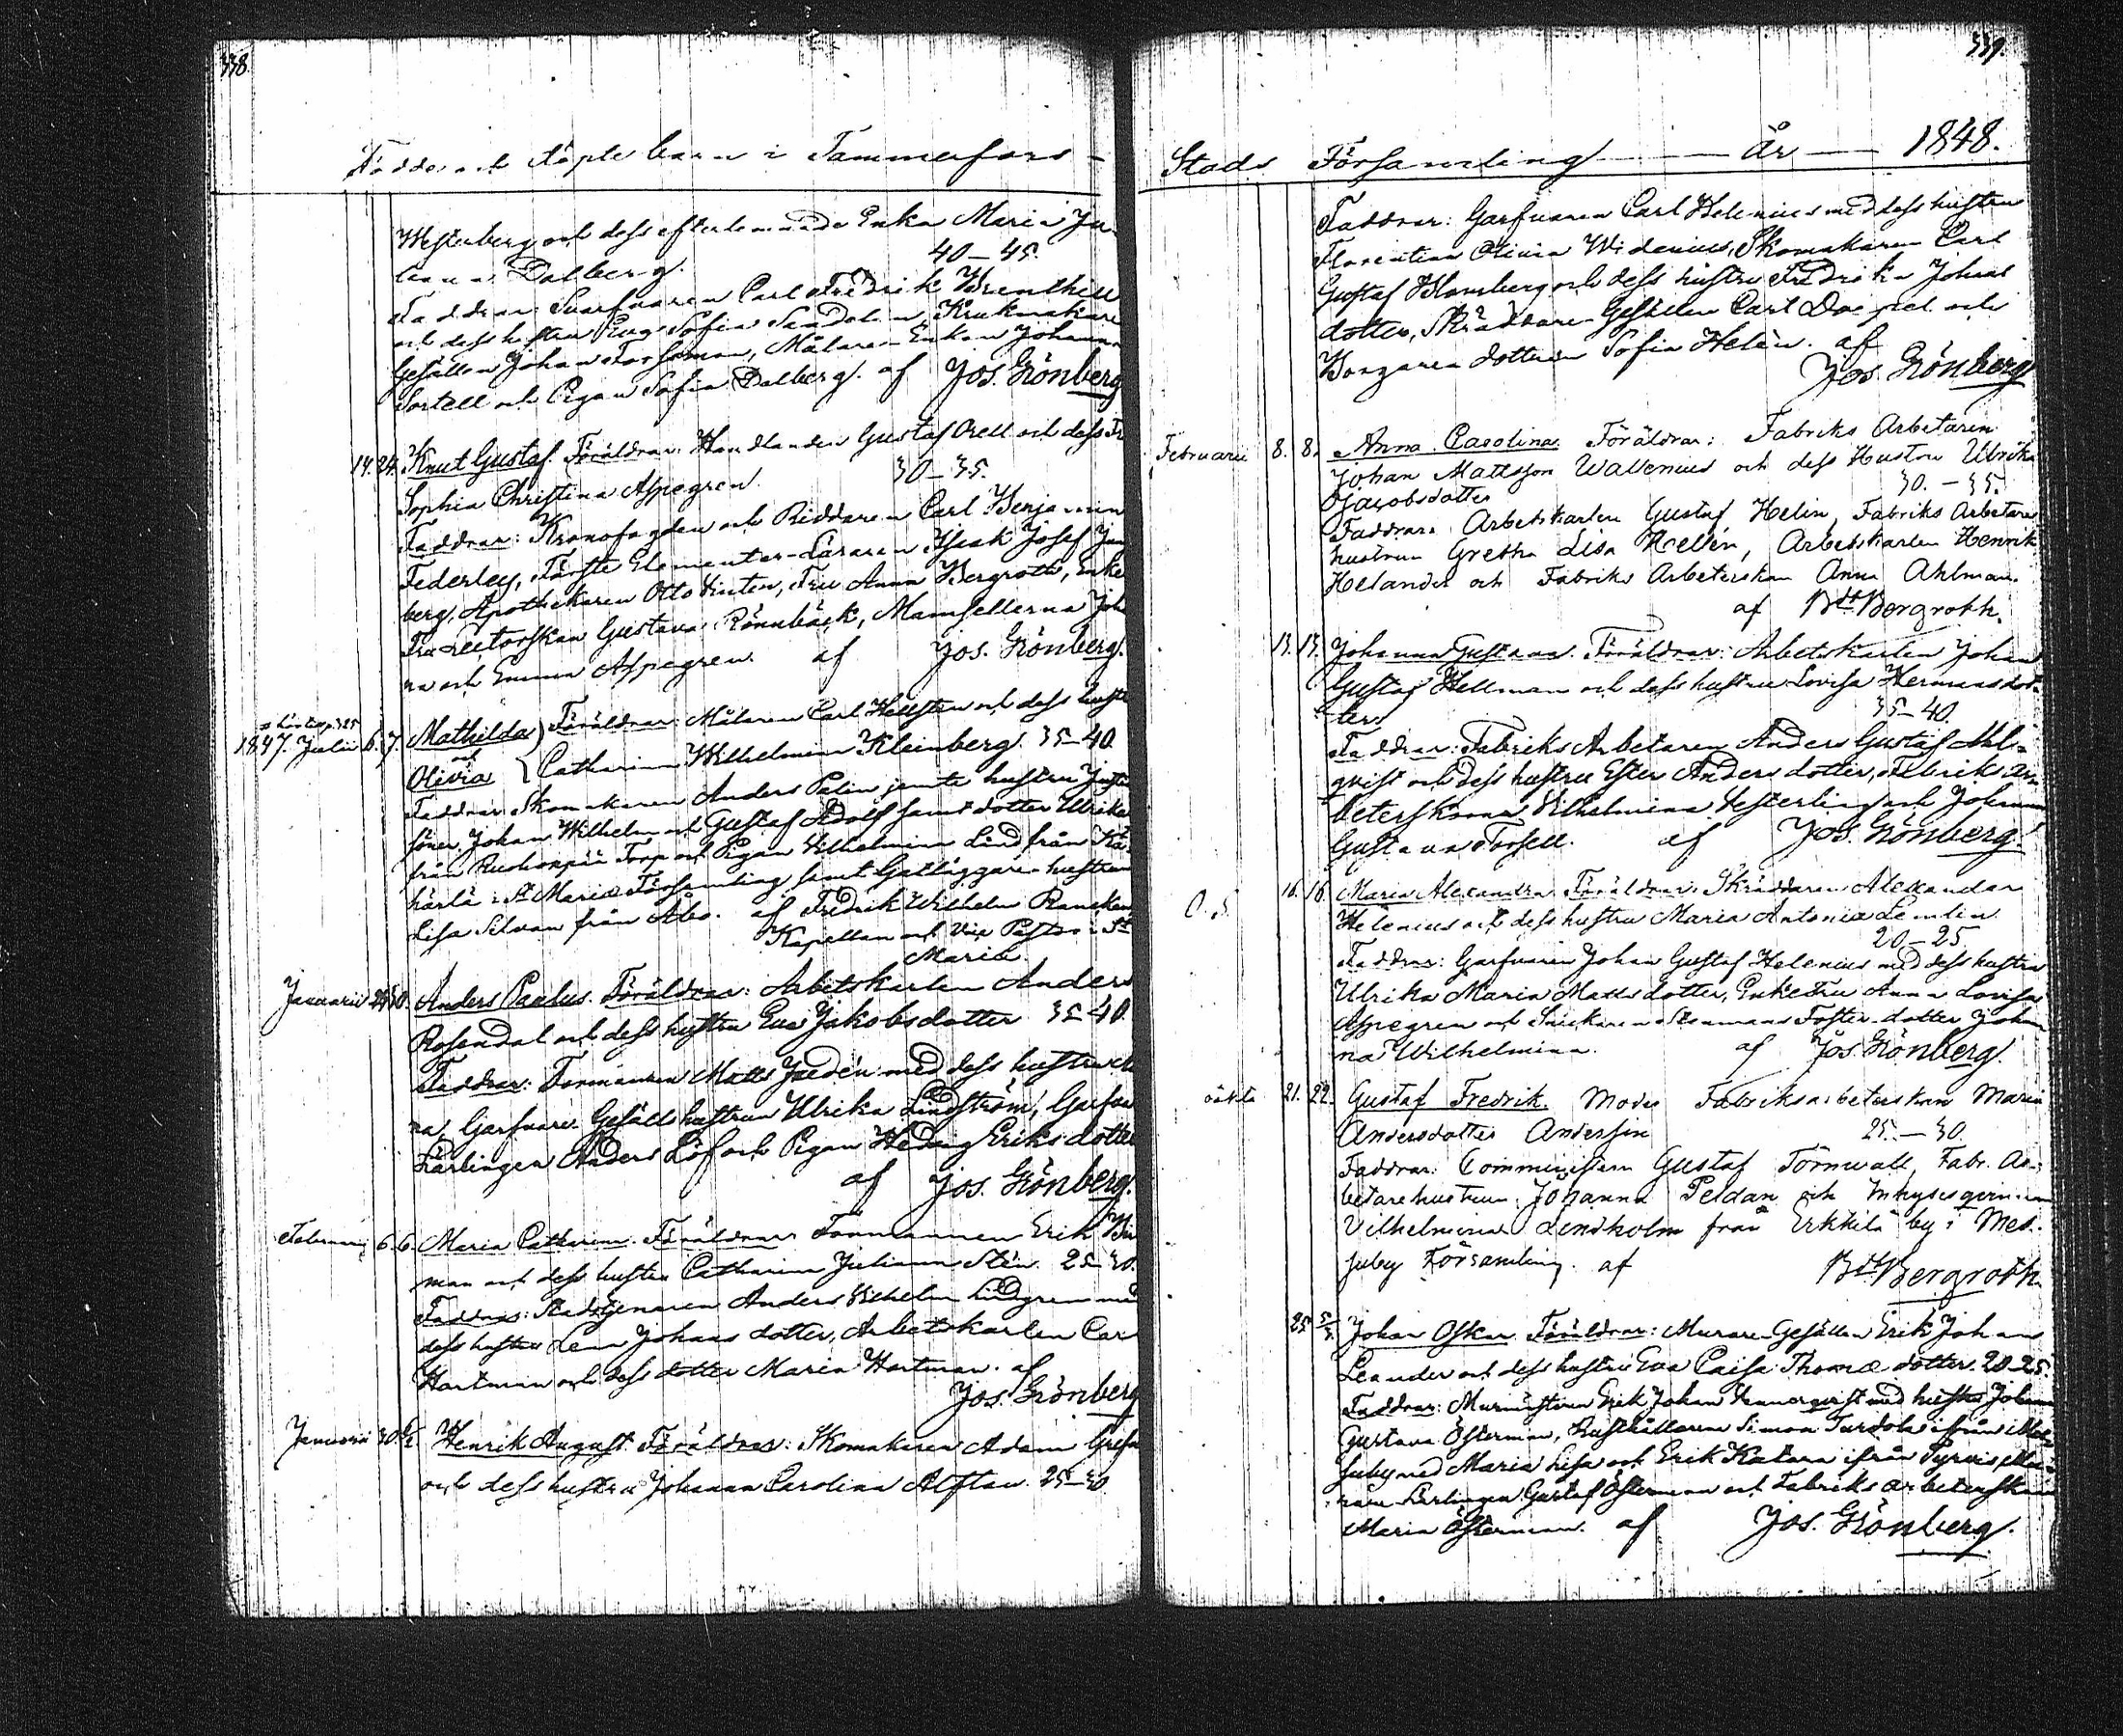 338.
Födde och döpte barn i Tammerfors
Westerberg och dess efterlemnade Enka Maria Ju-
liana Dalberg. 40–45.
Faddrar: Svarfvaren Carl Fredrik
och dess hustru Sofia Sandelin, Krukmakare
Gesällen Johan Forssman, Målare-Enkan Johanna
Sortell och Pigan Sofia Dalberg. af Jos. Grönberg
14. 24. Knut Gustaf. Föräldrar: Handlanden Gustaf Orell och dess Fr
Sophia Christina Aspegren. 30–35.
Faddrar: Kronofogden och Riddaren Carl Benjamin
Federley, Förste Elementar-Läraren Isak Josef
berg, Apothekaren Otto Fru Anna Bergroth, Enke
Fru Rectorskan Gustava Rönnbäck, Mamsellerna Joh
na och Emma Aspegren. af Jos. Grönberg.
1847. Julii 6. 7. Mathilda Föräldrar: Målaren Carl Hellsten och dess hustr
och
Olivia Catharina Wilhelmina Kleinberg. 35–40
Faddrar: Skomakaren Anders Palin jemte hustru
söner Johan Wilhelm och Gustaf Adolf samt dotter Ulrika
från Torp och Pigan Vilhelmina Lind från
härlä i St Mariæ Församling samt hustrun
Lisa Silvan från Åbo. af Fredrik Wilhelm
Kapellan och Vice Pastor i St
Mariæ.
Januarii 29. 30. Anders Paulus. Föräldrar: Arbetskarlen Anders
Rosendal och dess hustru Eva Jakobsdotter 35–40.
Faddrar: Formannen Matts med dess hustru
na, Garfvare Gesälls hustrun Ulrika Lindström, Garfva
Lärlingen Anders Löf och Pigan Hedvig Eriksdotter
af Jos. Grönberg.
Februarii 6. 6. Maria Catharina. Föräldrar: Formannen Erik
man och dess hustru Catharina Juliana Stén. 25–30.
Faddrar: Stadstjenaren Anders Vilhelm Lindgren med
dess hustru Lena Johansdotter, Arbetskarlen Car
Hartman och dess dotter Maria Hartman. af
Jos. Grönberg
Januarii 30. Henrik August. Föräldrar: Skomakaren Adam
och dess hustru Johanna Carolina Alftan. 25–30
339.
Stads Församling År 1848.
Faddrar: Garfvaren Carl Helenius med dess hustru
Florentina Olivia Widenius, Skomakaren Carl
Gustaf Blomberg och dess hustru Fredrika Johans
dotter, Skräddare Gesällen Carl och
Borgaredottren Sofia Helén. af
Jos. Grönberg
Februarii 8. 8. Anna Carolina. Föräldrar: Fabriks Arbetaren
Johan Mattsson Wallenius och dess Hustru Ulrika
Jacobsdotter 30.–35.
Faddrar: Arbetskarlen Gustaf Helin, Fabriks Arbetare
hustrun Gretha Lisa Hellén, Arbetskarlen Henrik
Helander och Fabriks Arbeterskan Anna Ahlman.
af Bdt Bergroth.
13. 13. Johanna Gustava. Föräldrar: Arbetskarlen Johan
Gustaf Hellman och dess hustru Lovisa Hermansdot-
ter. 35–40.
Faddrar: Fabriks Arbetaren Anders Gustaf Ahl-
qvist och dess hustru Ester Andersdotter, Fabriks Ar-
beterskorna Vilhelmina Vesterling och Johanna
Gustava Forsell. af Jos. Grönberg.
16. 16. Maria Alexandra. Föräldrar: Skräddaren Alexander
Helenius och dess hustru Maria Antonia Lemlin
20–25
Faddrar: Garfvaren Johan Gustaf Helenius med dess hustru
Ulrika Maria Mattsdotter, Enkefru Anna Lovisa
Aspegren och Snickaren Foster-dotter Johan
na Wilhelmina. af Jos. Grönberg.
oäkta 21. 22. Gustaf Fredrik. Moder Fabriksarbeterskan Maria
Andersdotter Andersin 25.–30.
Faddrar: Commissistern Gustaf Törnwall, Fabr. Ar-
betarehustrun Johanna Peldan och Inhysesqvinnan
Vilhelmina Lindholm från Erkkilä by i Mes-
suby Församling. af Bdt Bergroth.
25. 5/3. Johan Oskar. Föräldrar: Murare-Gesällen Erik Johan
Leander och dess hustru Eva Caisa Thomædotter. 20–25.
Faddrar: Murmästaren Erik Johan med hustru Johanna
Gustava Österman, Rusthållaren Simon Turdola ifrån Mes-
suby med Maria Lisa och Erik Katara ifrån
rare-Lärlingen Gustaf Österman och Fabriks arbeterskan
Maria Österman. af Jos. Grönberg.